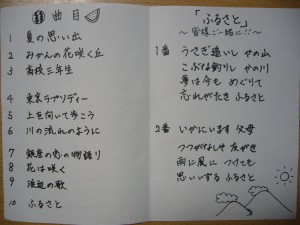 曲目
1 夏の思い出
2 みかんの花咲く丘
3 高校三年生
4 東京ラプソディー
5 上を向いて歩こう
6 川の流れのように
7 銀座の恋の物語り
8 花は咲く
9 浜辺の歌
10 ふるさと
「ふるさと」
～皆様ご一緒に!!～
1番 うさぎ追いし かの山
こぶな釣りし かの川
夢は今も めぐりて
忘れがたき ふるさと
2番 いかにいます 父母
つつがなしや 友がき
雨に風に つけても
思いいずる ふるさと